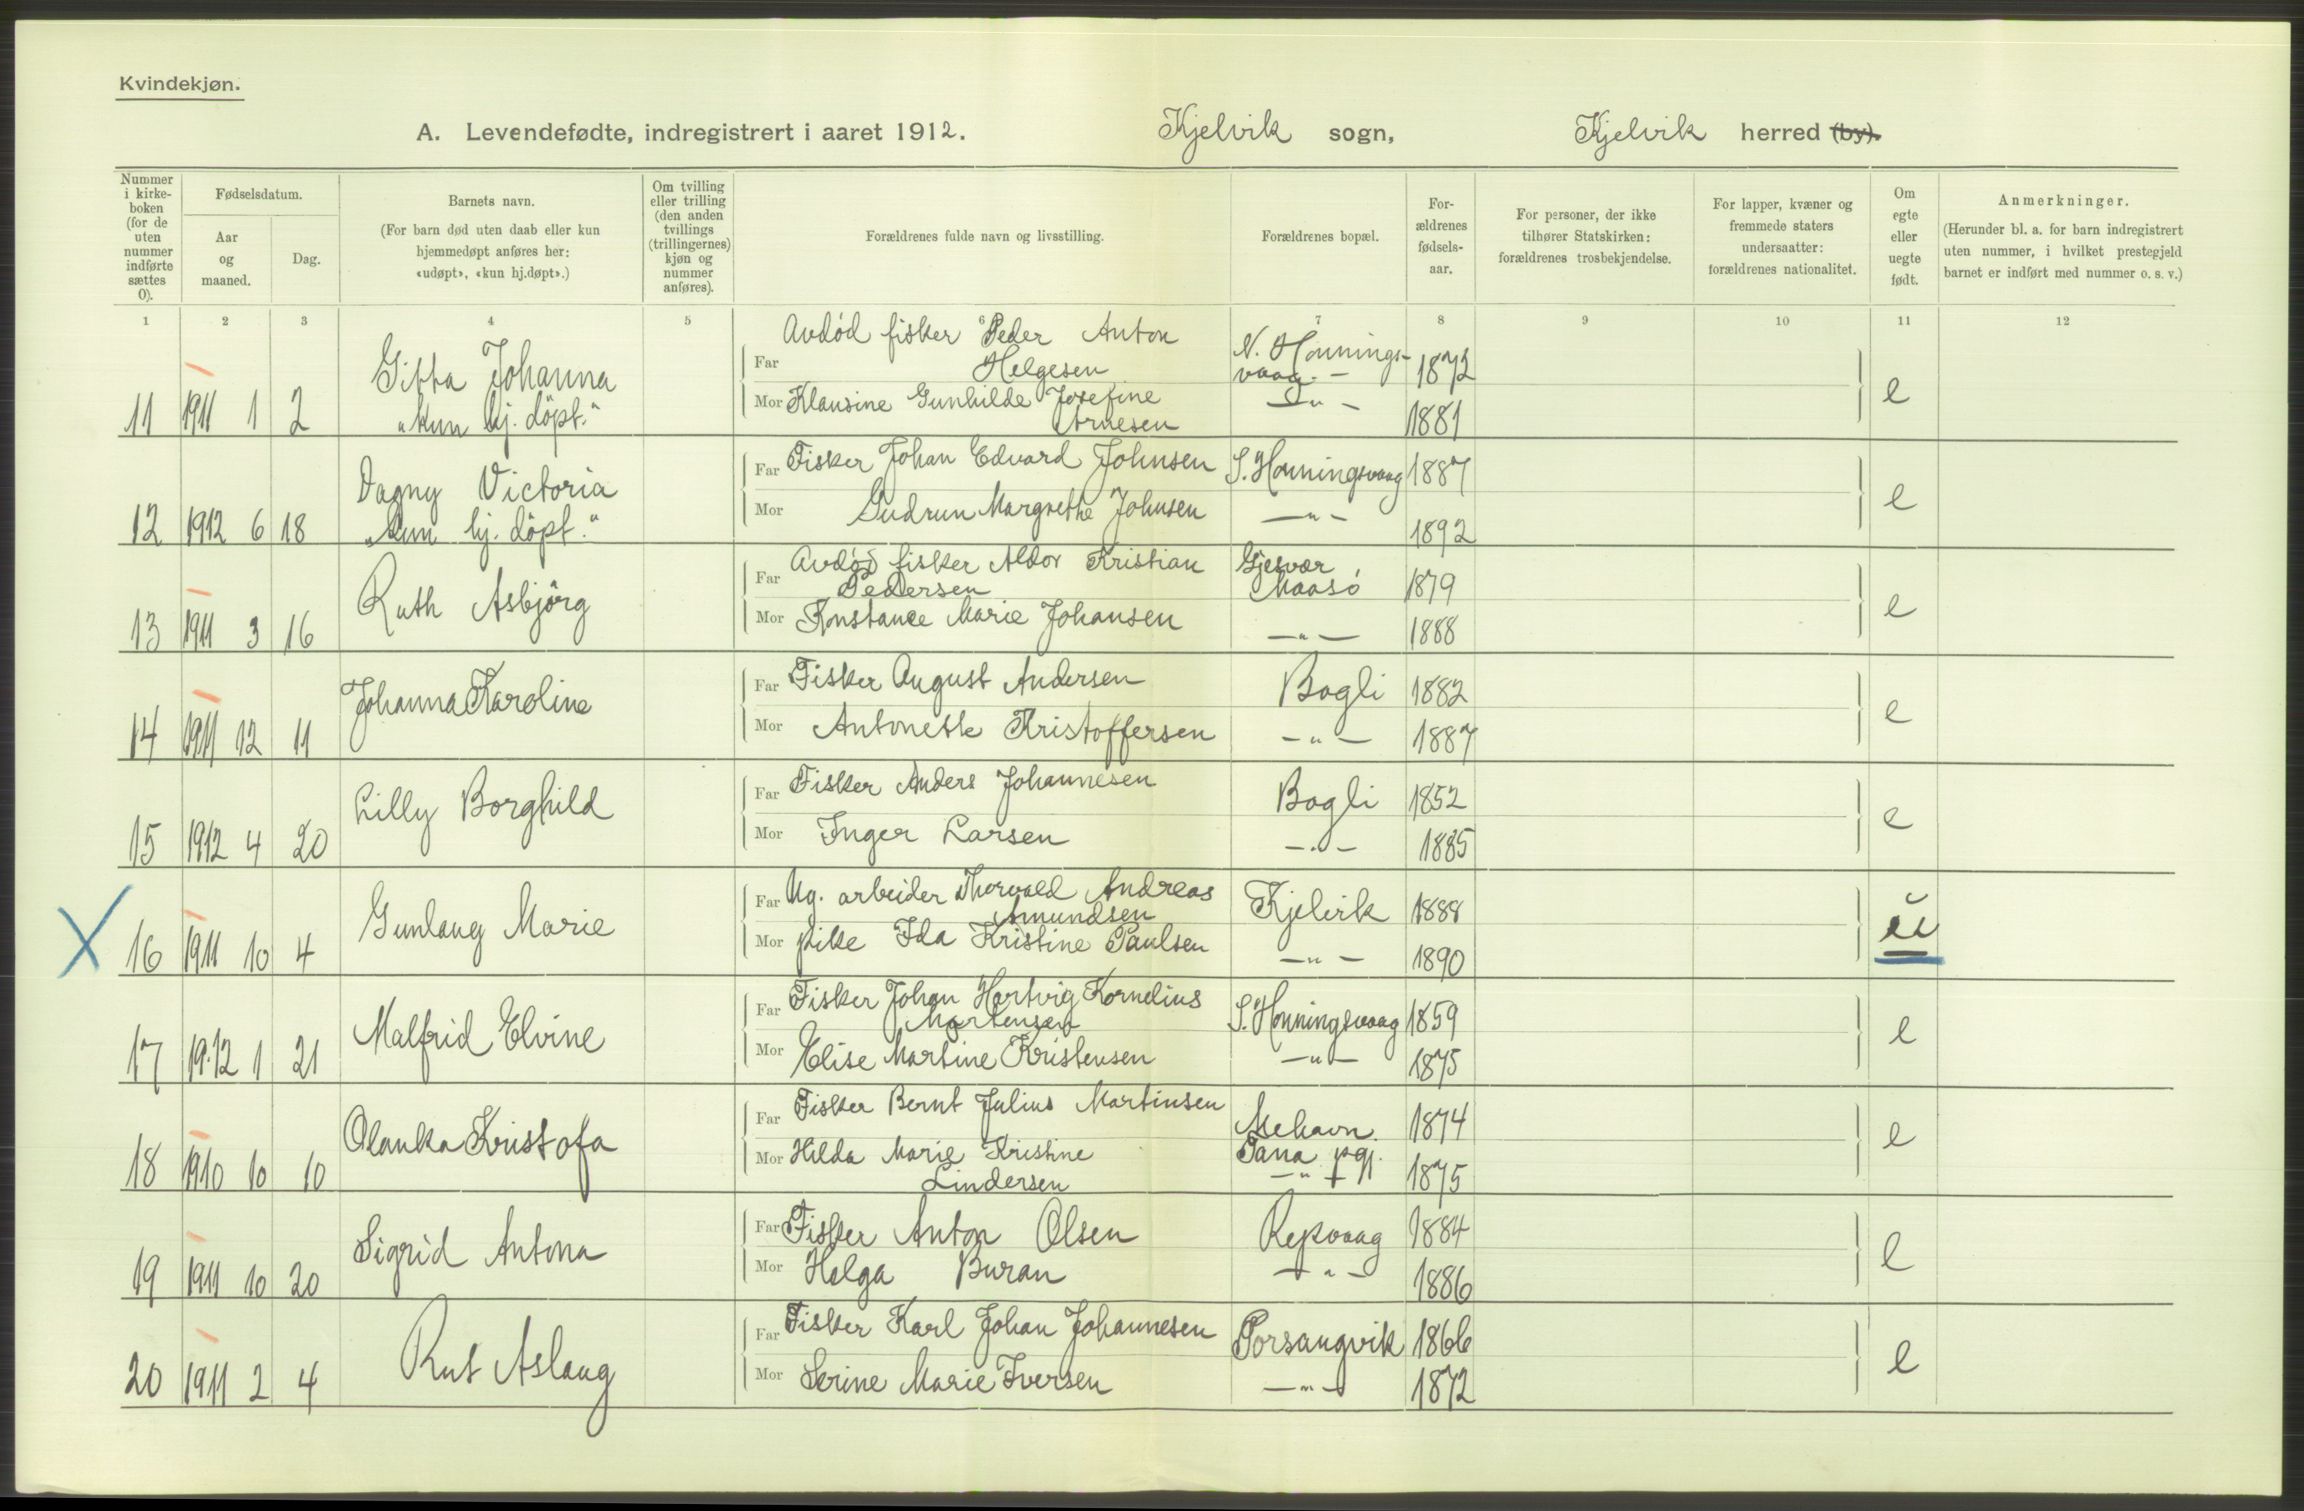 Kvindekjøn.
A. Levendefødte, indregistrert i aaret 1912. Kjelvik sogn, Kjelvik herred (by).
Nummer i kirke-boken (for de uten nummer indførte sættes 0).
Fødselsdatum.
Aar og maaned.
Dag.
Barnets navn.
(For barn død uten daab eller kun hjemmedøpt anføres her: «udøpt», «kun hj.døpt».)
Om tvilling eller trilling (den anden tvillings (trillingernes) kjøn og nummer anføres).
Forældrenes fulde navn og livsstilling.
Forældrenes bopæl.
For-ældrenes fødsels-aar.
For personer, der ikke tilhører Statskirken: forældrenes trosbekjendelse.
For lapper, kvæner og fremmede staters undersaatter: forældrenes nationalitet.
Om egte eller uegte født.
Anmerkninger.
(Herunder bl. a. for barn indregistrert uten nummer, i hvilket prestegjeld barnet er indført med nummer o. s. v.)
1 2 3 4 5 6 7 8 9 10 11 12
11 1911 1 2 Gitta Johanna "kun hj. döpt."
Far Avdöd fisker Peder Anton Helgesen N. Honnings-vaag 1872 e
Mor Klausine Gunhilde Josefine Arnesen —„— 1881
12 1912 6 18 Dagny Victoria "kun hj. döpt."
Far Fisker Johan Edvard Johnsen S. Honningsvaag 1887 e
Mor Gudrun Margrethe Johnsen —„— 1892
13 1911 3 16 Ruth Asbjörg
Far Avdöd fisker Aldor Kristian Pedersen Gjesvær Maasö 1879 e
Mor Konstance Marie Johansen —„— 1888
14 1911 12 11 Johanna Karoline
Far Fisker August Andersen Bogli 1882 e
Mor Antonette Kristoffersen —„— 1887
15 1912 4 20 Lilly Borghild
Far Fisker Anders Johannesen Bogli 1852 e
Mor Inger Larsen —„— 1885
X 16 1911 10 4 Gunlaug Marie
Far Ug. arbeider Thorvald Andreas Amundsen Kjelvik 1888
Mor pike Ida Kristine Paulsen —„— 1890
17 1912 1 21 Malfrid Elvine
Far Fisker Johan Hartvig Kornelius Mortensen S. Honningsvaag 1859 e
Mor Elise Martine Kristensen —„— 1875
18 1910 10 10 Olanka Kristofa
Far Fisker Bernt Julius Martinsen Mehavn. Tana pgj. 1874 e
Mor Hilda Marie Kristine Lindersen —„— 1875
19 1911 10 20 Sigrid Antona
Far Fisker Anton Olsen Repvaag 1884 e
Mor Helga Buran —„— 1886
20 1911 2 4 Rut Aslaug
Far Fisker Karl Johan Johannesen Porsangvik 1866 e
Mor Serine Marie Iversen —„— 1872